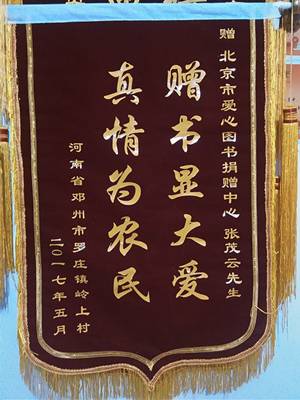 赠 北京市爱心图书捐赠中心 张茂云先生
赠书显大爱
真情为农民
河南省邓州市罗庄镇岭上村
二〇一七年五月